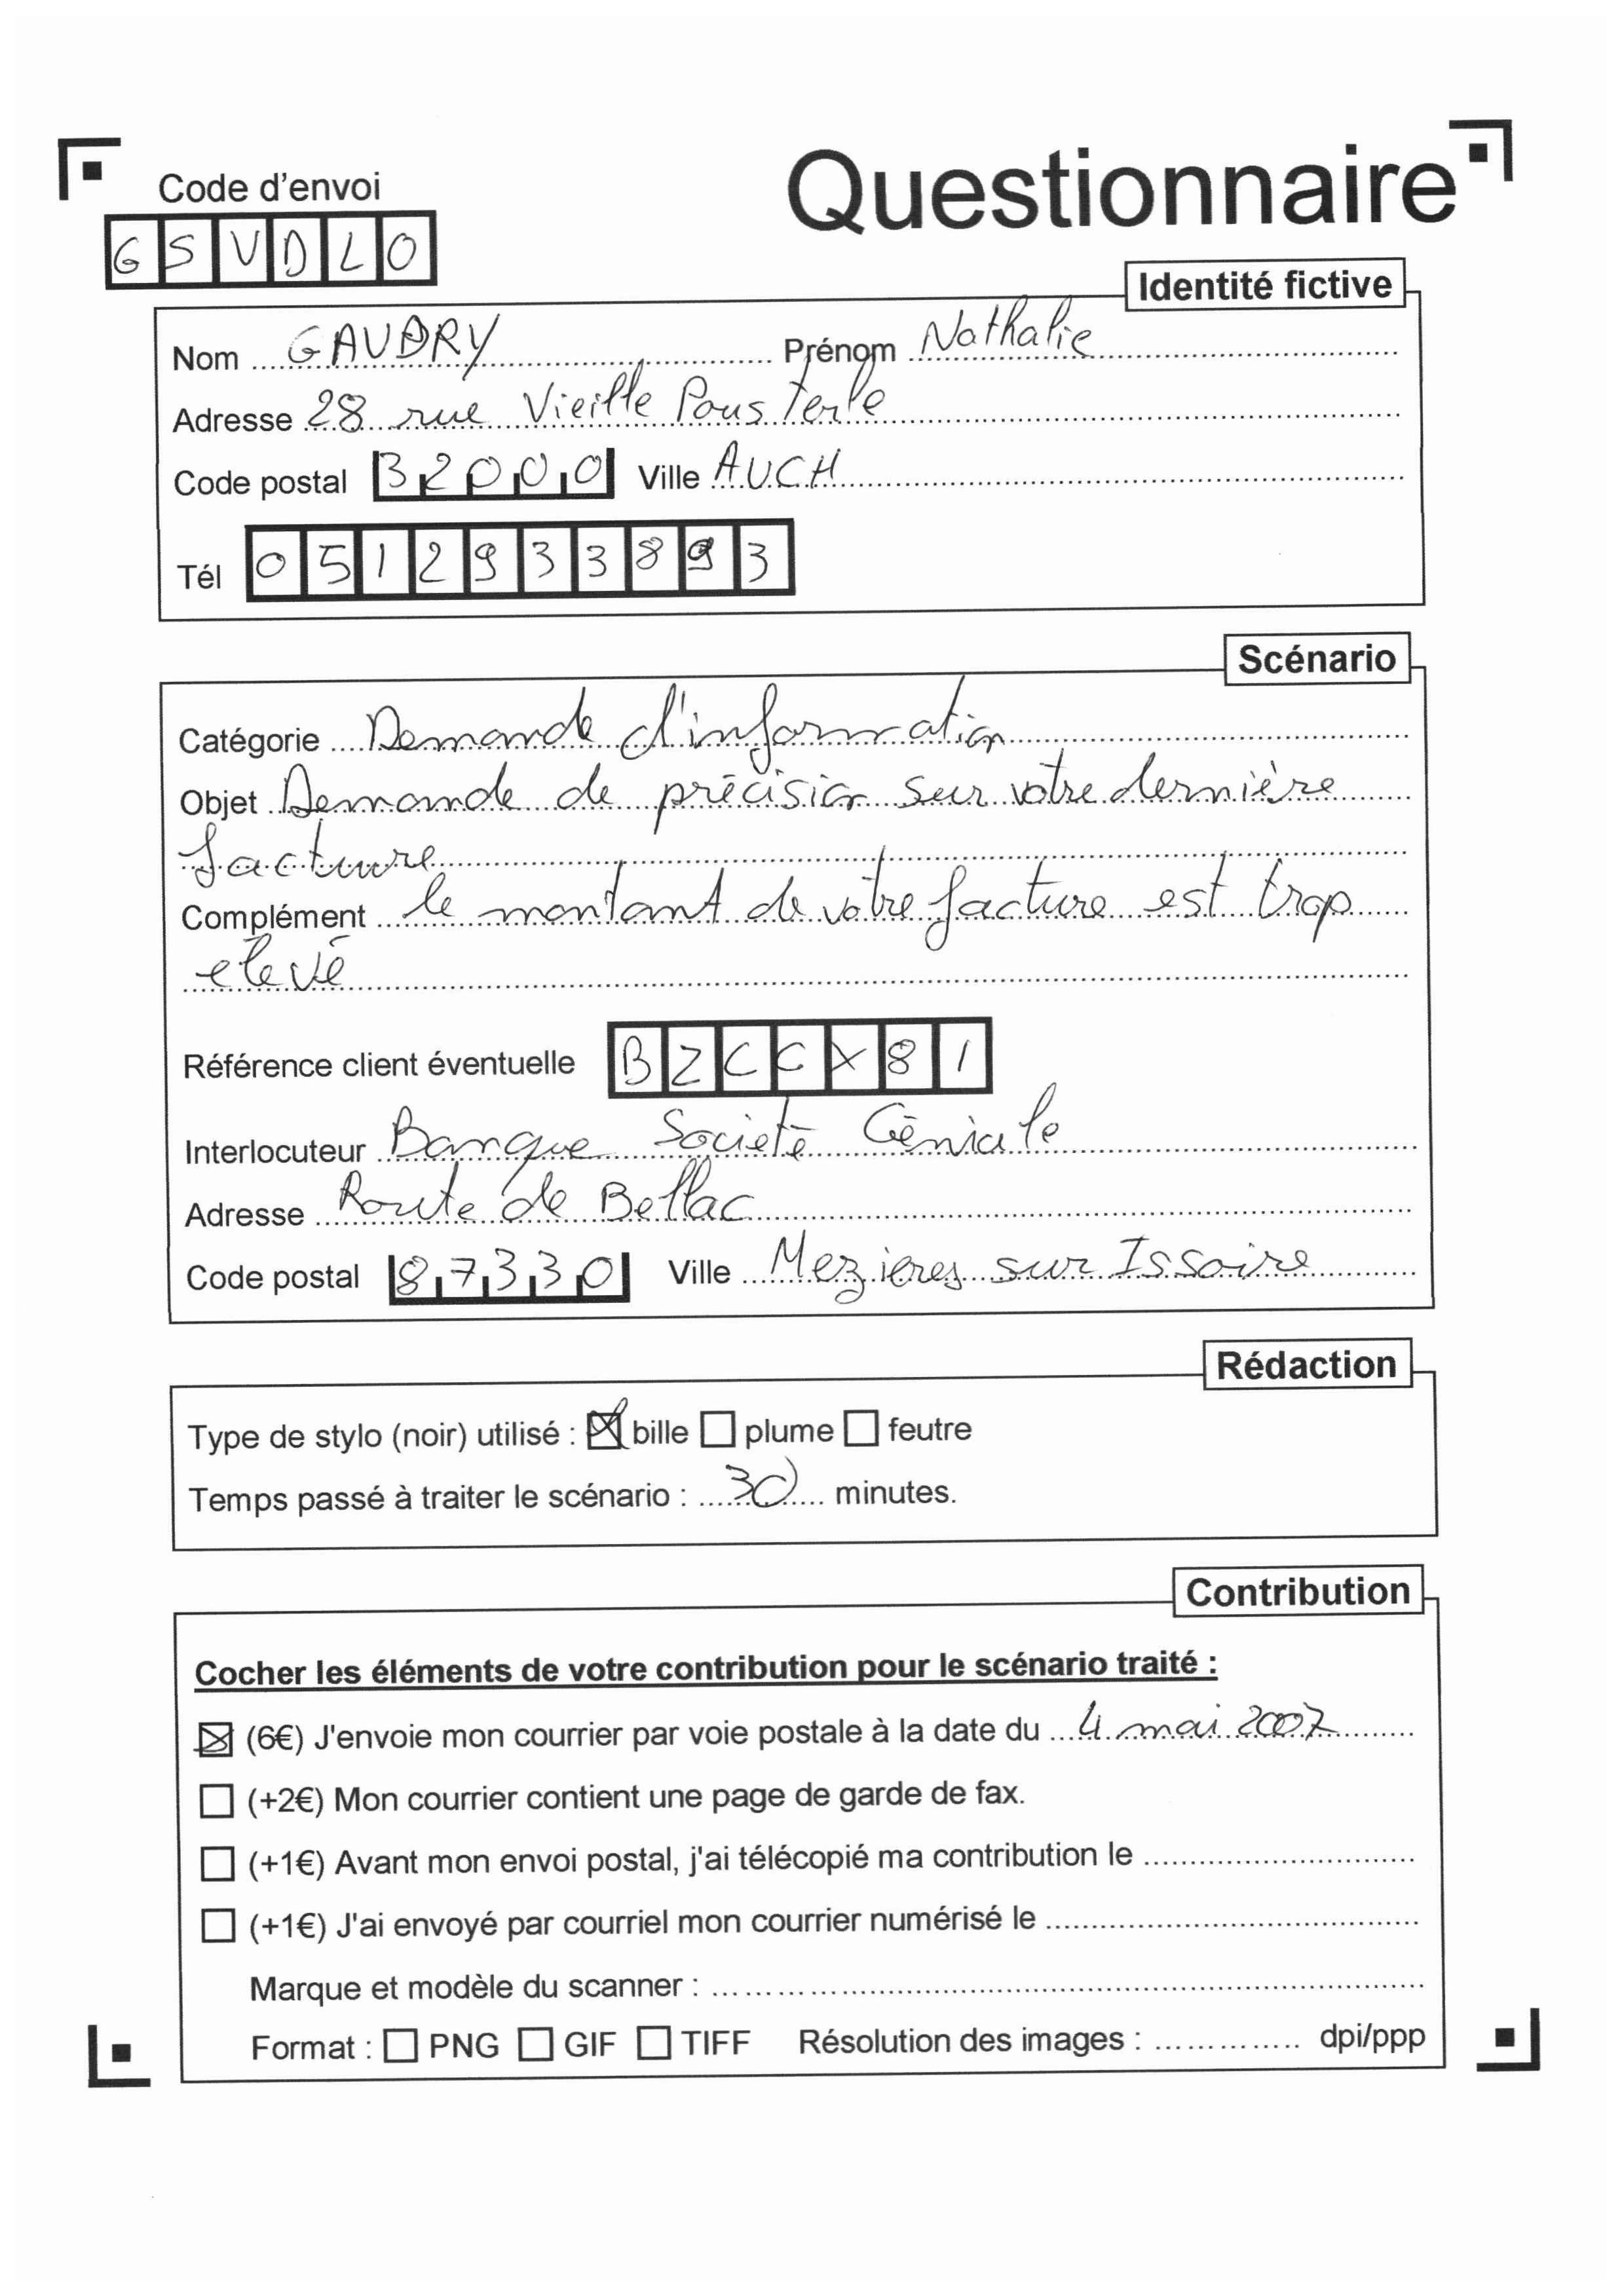 Code d'envoi
Questionnaire
GSVDLO
Identité fictive
Nom GAUDRY Prénom Nathalie
Adresse 28 rue Vieille Pousterle
Code postal 32000 Ville AUCH
Tél 0512933893
Scénario
Catégorie Demande d'information
Objet Demande de précision sur votre dernière
facture
Complément le montant de votre facture est trop
elevé
Référence client éventuelle BZCCX81
Interlocuteur Banque Societé Géniale
Adresse Route de Bellac
Code postal 87330 Ville Mezieres sur Issoire
Rédaction
Type de stylo (noir) utilisé : ☒ bille ☐ plume ☐ feutre
Temps passé à traiter le scénario : 30 minutes.
Contribution
Cocher les éléments de votre contribution pour le scénario traité :
☒ (6€) J'envoie mon courrier par voie postale à la date du 4 mai 2007
☐ (+2€) Mon courrier contient une page de garde de fax.
☐ (+1€) Avant mon envoi postal, j'ai télécopié ma contribution le
☐ (+1€) J'ai envoyé par courriel mon courrier numérisé le
Marque et modèle du scanner :
Format : ☐ PNG ☐ GIF ☐ TIFF Résolution des images : dpi/ppp